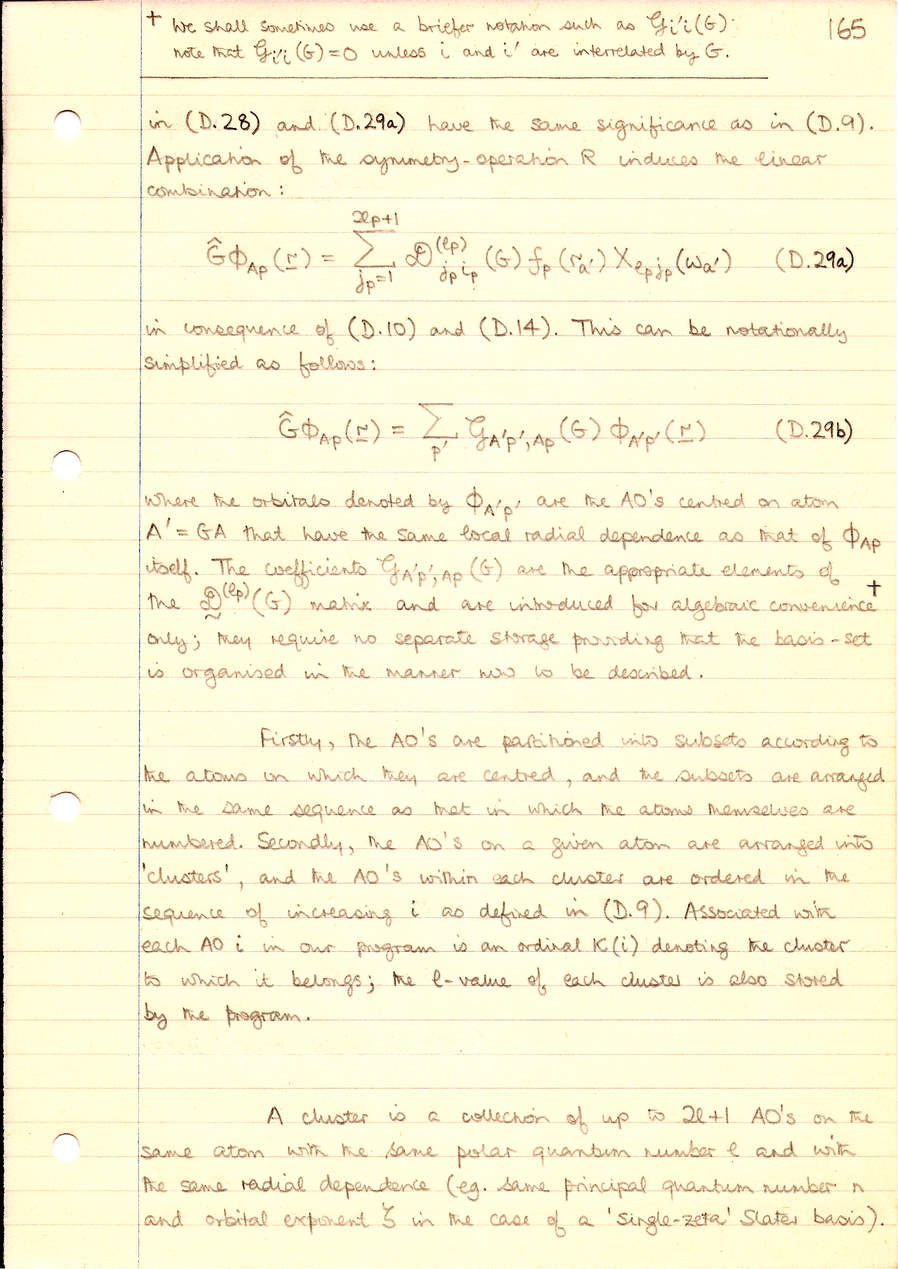 † We shall sometimes use a briefer notation such as 𝒢i'i(G):
165
note that 𝒢i'i(G)=0 unless i and i' are interrelated by G.
in (D.28) and (D.29a) have the same significance as in (D.9).
Application of the symmetry-operation R induces the linear
combination:
ĜΦAp(r) = Σ_{jp=1}^{2lp+1} 𝒟^{(lp)}_{jp ip}(G) fp(ra') Xlpjp(ωa') (D.29a)
in consequence of (D.10) and (D.14). This can be notationally
simplified as follows:
ĜΦAp(r) = Σ_{p'} 𝒢A'p',Ap(G) ΦA'p'(r) (D.29b)
where the orbitals denoted by ΦA'p' are the AO's centred on atom
A' = GA that have the same local radial dependence as that of ΦAp
itself. The coefficients 𝒢A'p',Ap(G) are the appropriate elements of
the 𝒟^{(lp)}(G) matrix and are introduced for algebraic convenience†
only; they require no separate storage providing that the basis-set
is organised in the manner now to be described.
Firstly, the AO's are partitioned into subsets according to
the atoms on which they are centred, and the subsets are arranged
in the same sequence as that in which the atoms themselves are
numbered. Secondly, the AO's on a given atom are arranged into
'clusters', and the AO's within each cluster are ordered in the
sequence of increasing i as defined in (D.9). Associated with
each AO i in our program is an ordinal K(i) denoting the cluster
to which it belongs; the l-value of each cluster is also stored
by the program.
A cluster is a collection of up to 2l+1 AO's on the
same atom with the same polar quantum number l and with
the same radial dependence (eg. same principal quantum number n
and orbital exponent ζ in the case of a 'single-zeta' Slater basis).